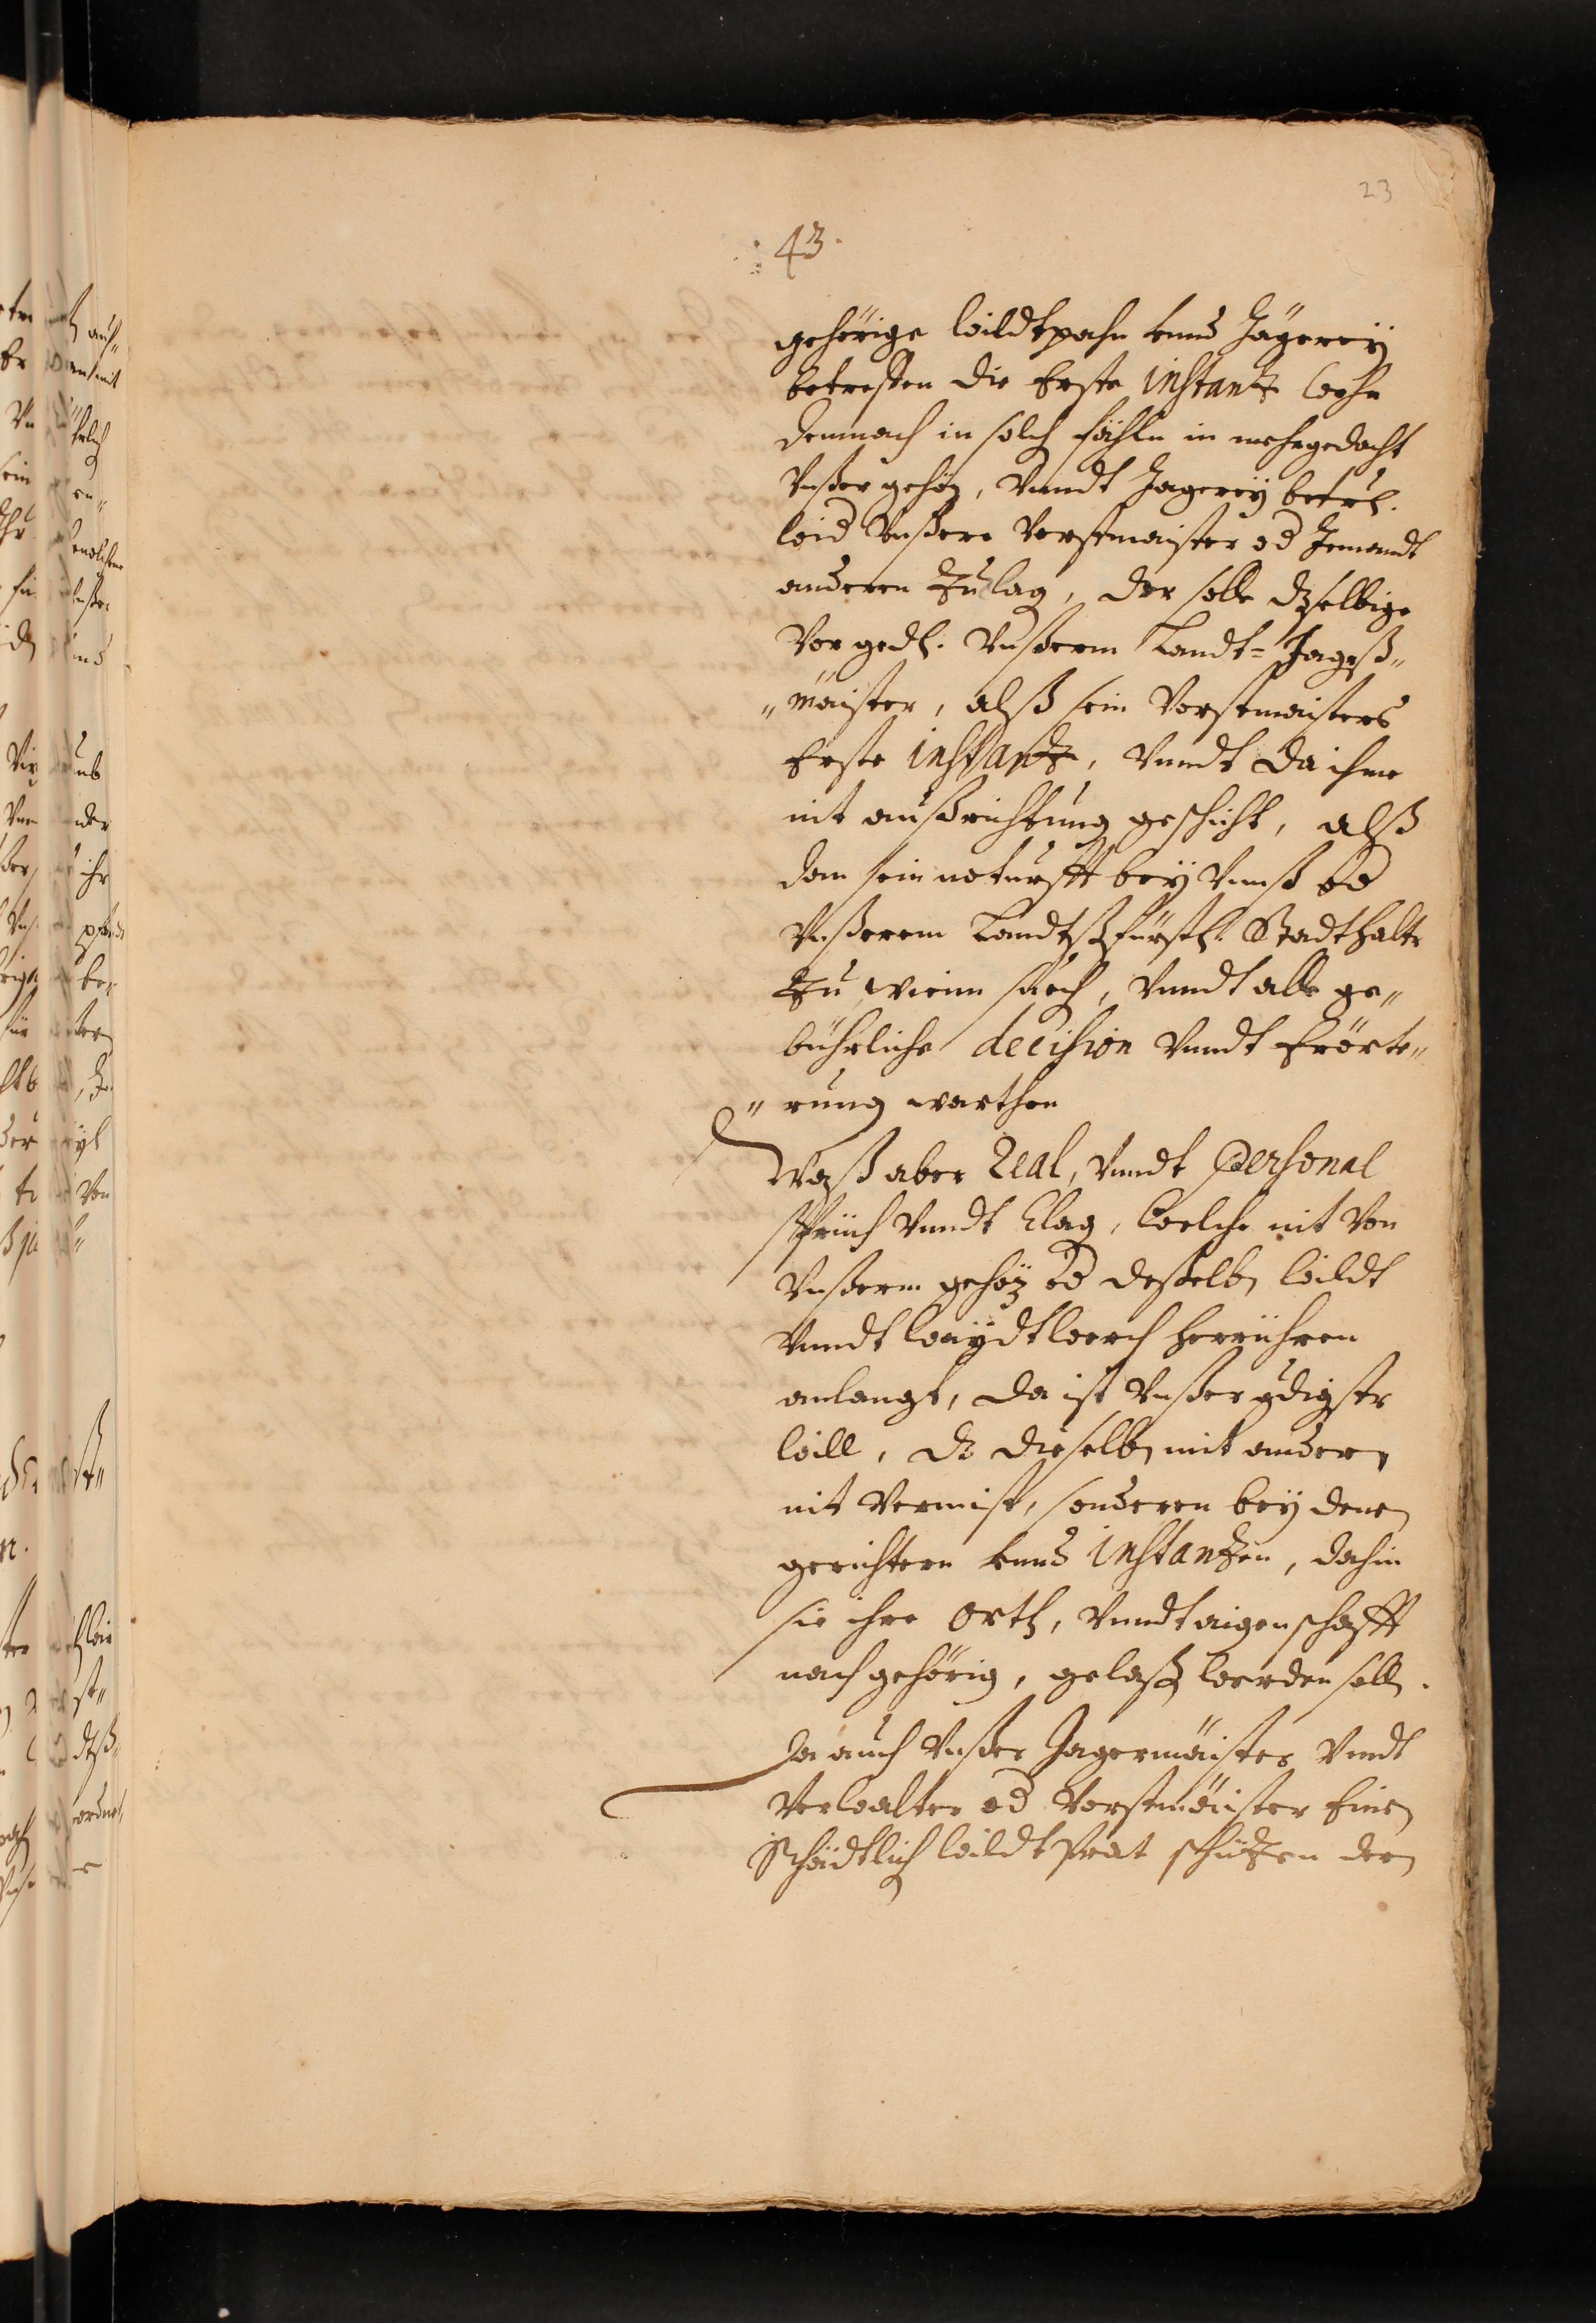 23
43.
gehörige wildtpahn unnd Jägereÿ
betreffen die Erste instantz wehr
demnach in solch fählln in mehrgedacht
Unßer gehöz, Unndt Jagereÿ
wid Unßere Vorstmaister od Jemandt
anderen Zu clag, der solle dzselbige
Vor gedh. Unßerm Landt= Jageß„
„maister, alß sein Vorstmaisters
Erste instantz, Unndt da ihme
nit außrichtung geschicht, alß
dan sein noturfft beÿ Unnß od
Unßerem Landtsfürstl. Stadthalter
Zu wienn such, Unndt alle ge„
bührliche decision Unndt Erörte„
„rung warthen
Waß aber Real, Unndt Personal
Sprüch Unndt Clag, welche nit Von
Unßerm gehöz od desselbn wildt
Unndt waÿdtwerch herrühren
anlangt, da ist Unßer gdigster
will, dz dieselbn mit andern
nit Vermist, sonderen beÿ denen
gerichtern unnd instantzen, dahin
sie ihre Orth, Unndt aigenschafft
nach gehörig, gelaßn werden solln.
Da auch Unßer Jagermaister Undt
Verwalter od Vorstmaister Einen
Schädtlich wildtprat schützen den